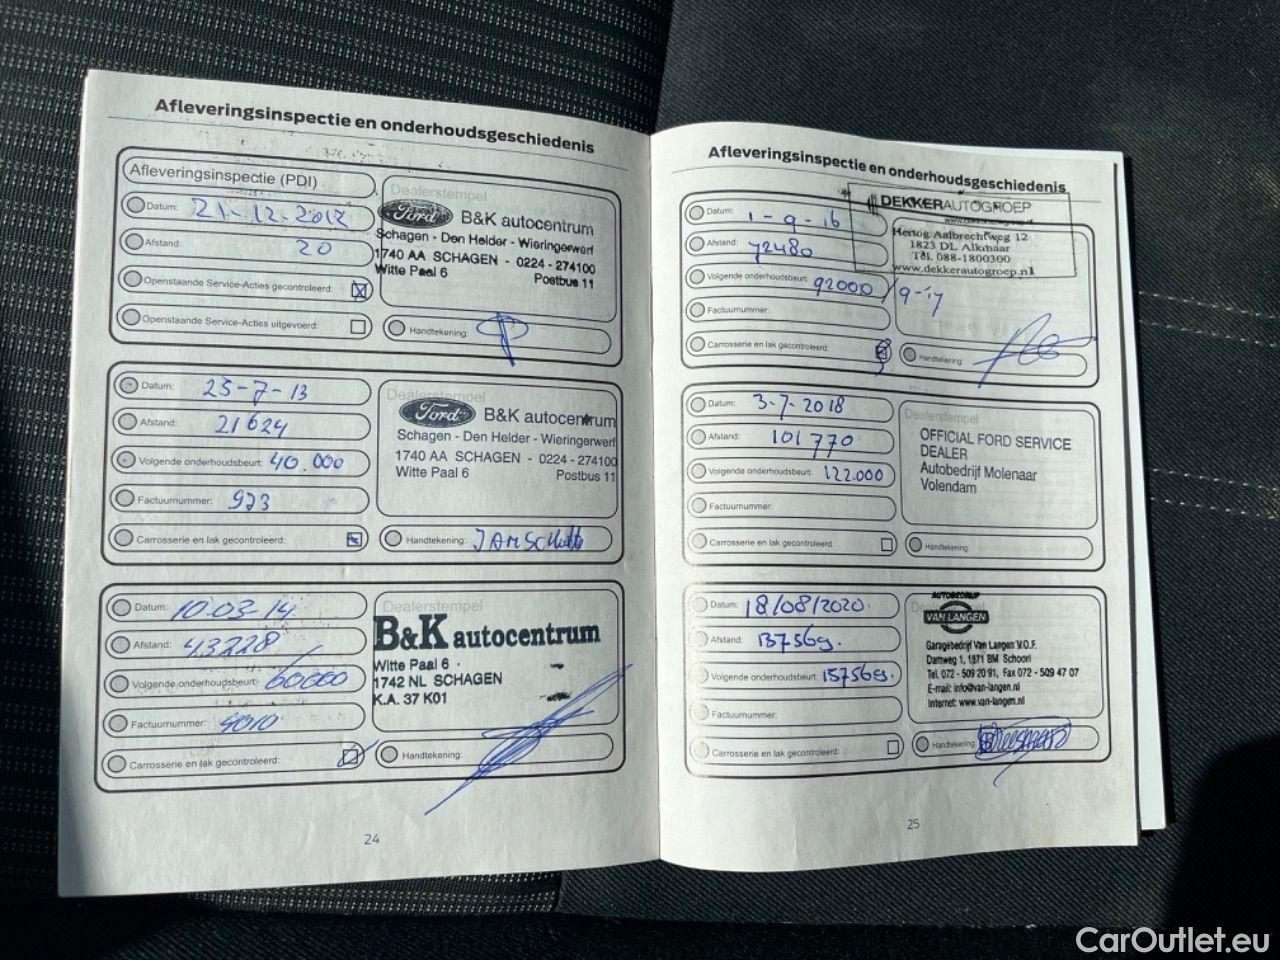 Afleveringsinspectie en onderhoudsgeschiedenis
Afleveringsinspectie (PDI)
Datum: 21-12-2012
Afstand: 20
Openstaande Service-Acties gecontroleerd:
Openstaande Service-Acties uitgevoerd:
Dealerstempel
Ford B&K autocentrum
Schagen - Den Helder - Wieringerwerf
1740 AA SCHAGEN - 0224 - 274100
Witte Paal 6 Postbus 11
Handtekening:
Datum: 25-7-13
Afstand: 21624
Volgende onderhoudsbeurt: 40.000
Factuurnummer: 923
Carrosserie en lak gecontroleerd:
Dealerstempel
Ford B&K autocentrum
Schagen - Den Helder - Wieringerwerf
1740 AA SCHAGEN - 0224 - 274100
Witte Paal 6 Postbus 11
Handtekening:
Datum: 10-03-14
Afstand: 43228
Volgende onderhoudsbeurt: 60000
Factuurnummer: 4010
Carrosserie en lak gecontroleerd:
Dealerstempel
B&K autocentrum
Witte Paal 6
1742 NL SCHAGEN
K.A. 37 K01
Handtekening:
24
Afleveringsinspectie en onderhoudsgeschiedenis
Datum: 1-9-16
Afstand: 72480
Volgende onderhoudsbeurt: 92000 / 9-'17
Factuurnummer:
Carrosserie en lak gecontroleerd:
DEKKERAUTOGROEP
Hertog Aalbrechtweg 12
1823 DL Alkmaar
Tel. 088-1800300
www.dekkerautogroep.nl
Handtekening:
Datum: 3-7-2018
Afstand: 101770
Volgende onderhoudsbeurt: 122.000
Factuurnummer:
Carrosserie en lak gecontroleerd:
Dealerstempel
OFFICIAL FORD SERVICE
DEALER
Autobedrijf Molenaar
Volendam
Handtekening:
Datum: 18/08/2020.
Afstand: 137569.
Volgende onderhoudsbeurt: 157569.
Factuurnummer:
Carrosserie en lak gecontroleerd:
AUTOBEDRIJF
VAN LANGEN
Garagebedrijf Van Langen V.O.F.
Damweg 1, 1871 BM Schoorl
Tel. 072 - 509 20 91, Fax 072 - 509 47 07
E-mail: info@van-langen.nl
Internet: www.van-langen.nl
Handtekening:
25
CarOutlet.eu